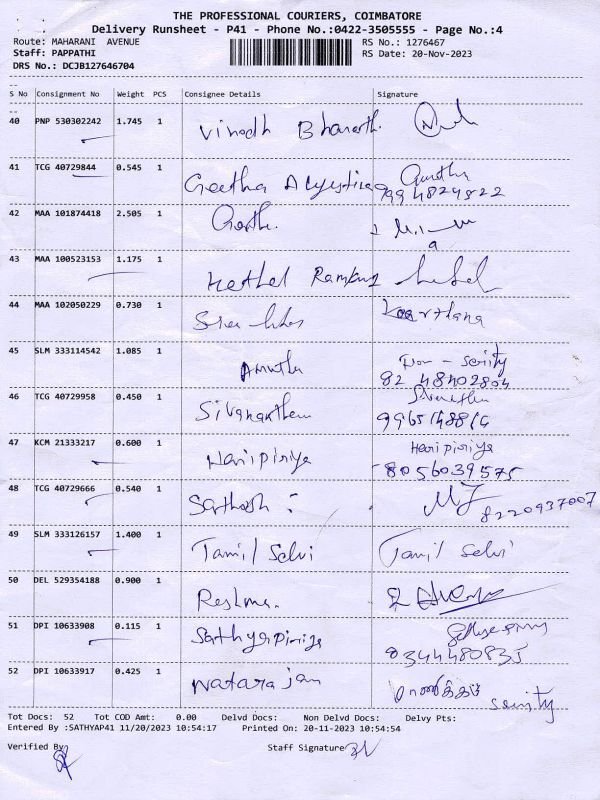 THE PROFESSIONAL COURIERS, COIMBATORE
Delivery Runsheet - P41 - Phone No.:0422-3505555 - Page No.:4
Route: MAHARANI AVENUE
RS No.: 1276467
Staff: PAPPATHI
RS Date: 20-Nov-2023
DRS No.: DCJB127646704
S No Consignment No Weight PCS Consignee Details Signature
40 PNP 530302242 1.745 1 Vinodh Bharath.
41 TCG 40729844 0.545 1 Geetha
9994824822
42 MAA 101874418 2.505 1
43 MAA 100523153 1.175 1
44 MAA 102050229 0.730 1 Keerthana
45 SLM 333114542 1.085 1 Amutha
8248402804
46 TCG 40729958 0.450 1 Sivananthem
47 KCM 21333217 0.600 1 Haripiriya Haripiriya
8056039575
48 TCG 40729666 0.540 1 Santhosh
8220937007
49 SLM 333126157 1.400 1 Tamil Selvi Tamil Selvi
50 DEL 529354188 0.900 1 Reshma.
51 DPI 10633908 0.115 1 Sathyapiriya
8344480835
52 DPI 10633917 0.425 1 Natarajan மாணிக்கம்
Tot Docs: 52 Tot COD Amt: 0.00 Delvd Docs: Non Delvd Docs: Delvy Pts:
Entered By :SATHYAP41 11/20/2023 10:54:17 Printed On: 20-11-2023 10:54:54
Verified By
Staff Signature